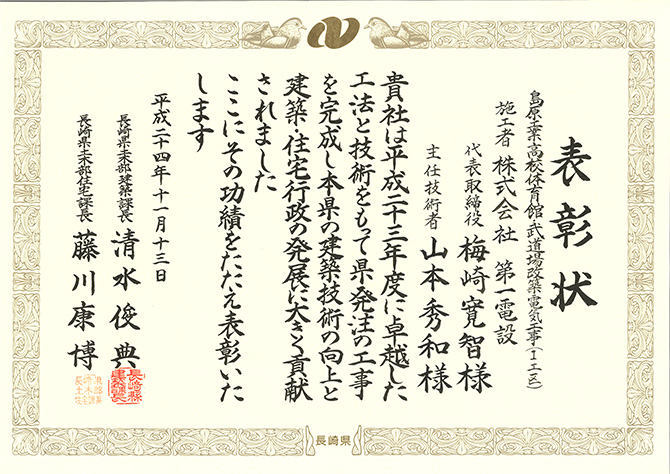 表彰状
島原工業高校体育館・武道場改築電気工事(1工区)
施工者 株式会社 第一電設
代表取締役 梅崎寛智様
主任技術者 山本秀和様
貴社は平成二十三年度に卓越した
工法と技術をもって県発注の工事
を完成し本県の建築技術の向上と
建築・住宅行政の発展に大きく貢献
されました
ここにその功績をたたえ表彰いた
します
平成二十四年十一月十三日
長崎県土木部建築課長 清水俊典
長崎県土木部住宅課長 藤川康博
長崎県